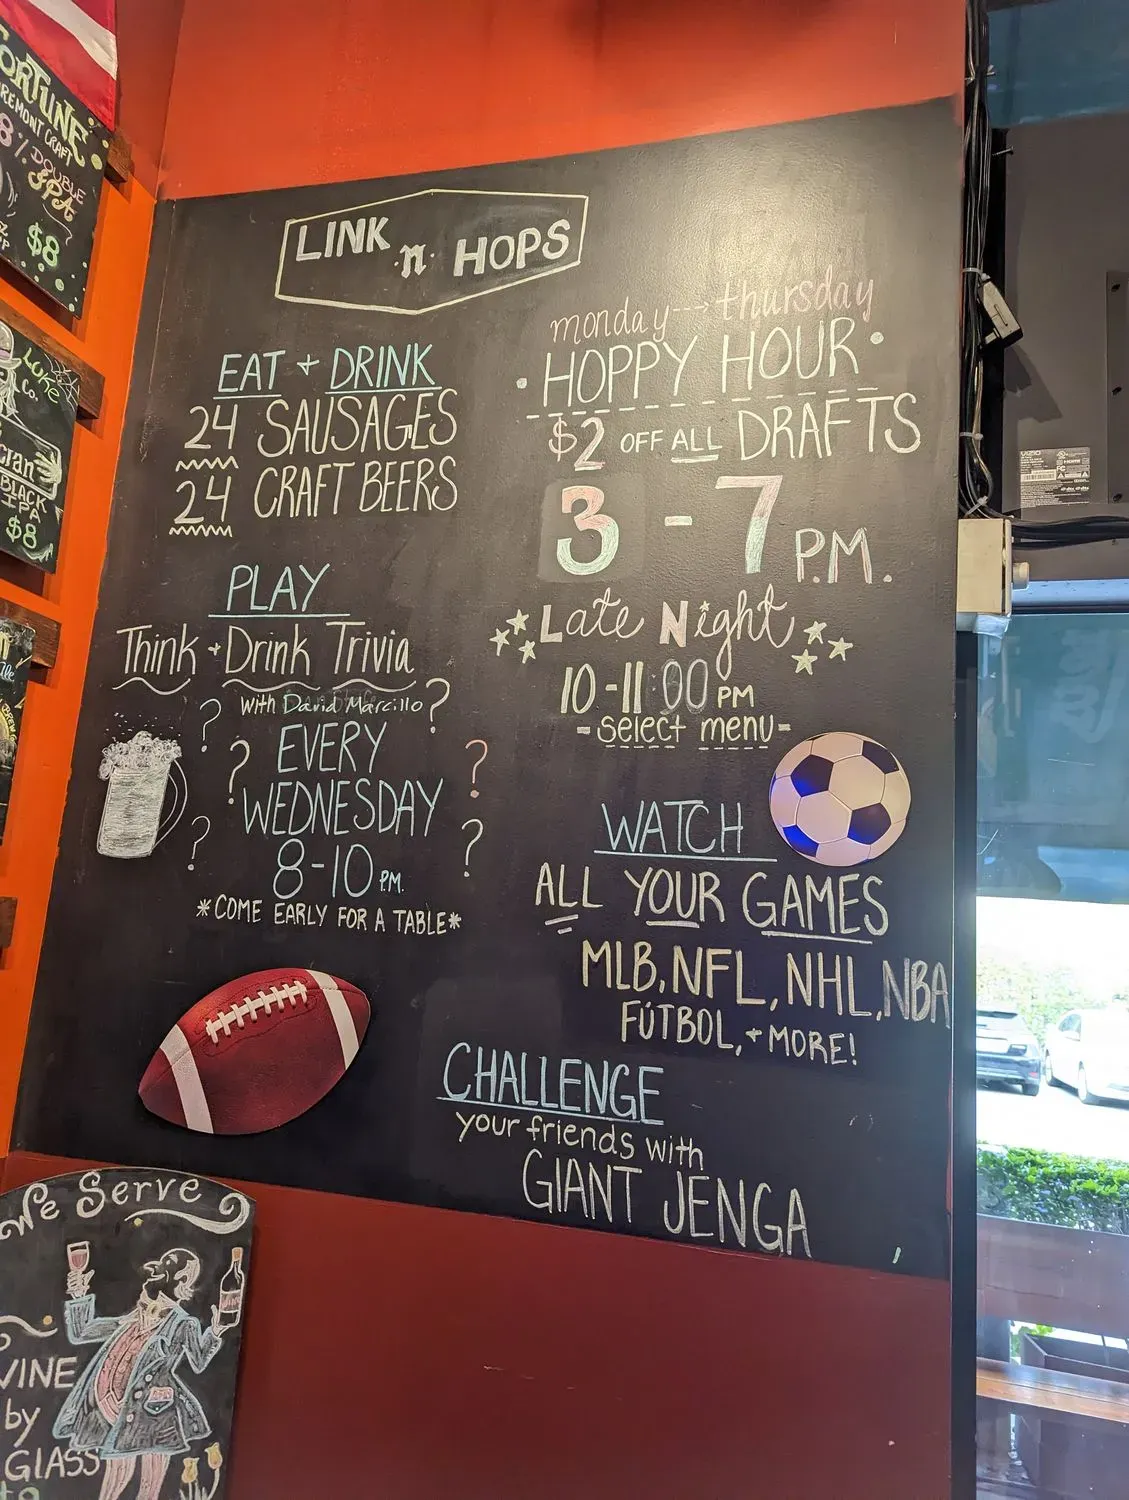 FORTUNE
FREMONT CRAFT
8%
DOUBLE
IPA
$8
LUKE
Co.
BLACK
IPA
$8
LINK n HOPS
EAT + DRINK
24 SAUSAGES
24 CRAFT BEERS
PLAY
Think + Drink Trivia
with David Marcillo
EVERY
WEDNESDAY
8-10 P.M.
*COME EARLY FOR A TABLE*
monday -- thursday
HOPPY HOUR
$2 OFF ALL DRAFTS
3 - 7 P.M.
Late Night
10-11:00 PM
-select menu-
WATCH
ALL YOUR GAMES
MLB, NFL, NHL, NBA
FÚTBOL, + MORE!
CHALLENGE
your friends with
GIANT JENGA
We Serve
WINE
WINE
by
GLASS
VIZIO
HDMI